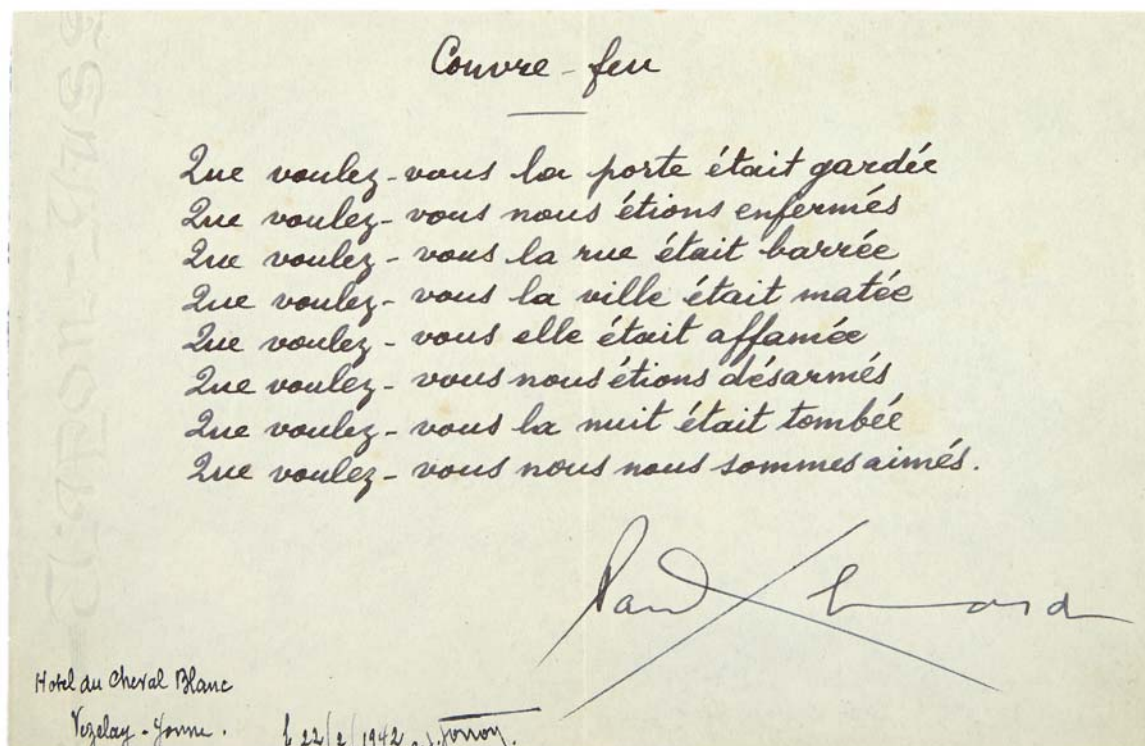 Couvre-feu
Que voulez-vous la porte était gardée
Que voulez-vous nous étions enfermés
Que voulez-vous la rue était barrée
Que voulez-vous la ville était matée
Que voulez-vous elle était affamée
Que voulez-vous nous étions désarmés
Que voulez-vous la nuit était tombée
Que voulez-vous nous nous sommes aimés.
Paul Eluard
Hotel du Cheval Blanc
Vezelay - Yonne.
22/2/1942